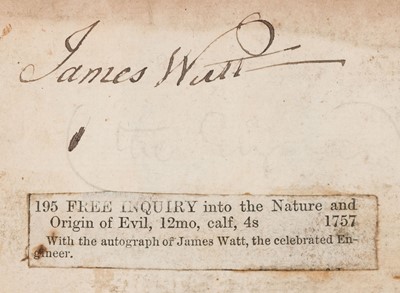 James Watt
195 FREE INQUIRY into the Nature and
Origin of Evil, 12mo, calf, 4s 1757
With the autograph of James Watt, the celebrated En-
gineer.